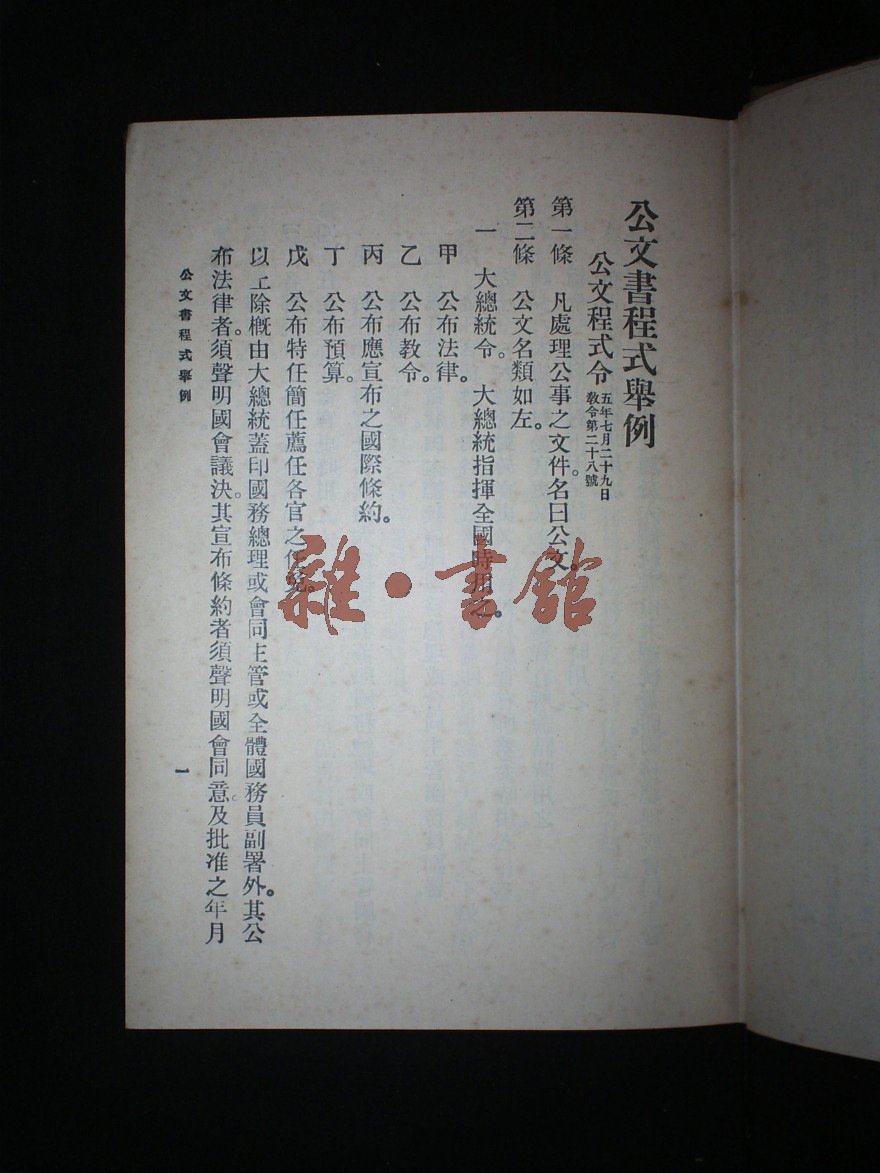 公文書程式舉例
公文程式令
五年七月二十九日
敎令第二十八號
第一條　凡處理公事之文件。名曰公文。
第二條　公文名類如左。
一　大總統令。　大總統指揮全國時用之。
甲　公布法律。
乙　公布教令。
丙　公布應宣布之國際條約。
丁　公布預算。
戊　公布特任簡任薦任各官之任免。
以上除概由大總統蓋印國務總理或會同主管或全體國務員副署外。其公
布法律者。須聲明國會議決。其宣布條約者須聲明國會同意。及批准之年月
公文書程式舉例
一
雜·書館